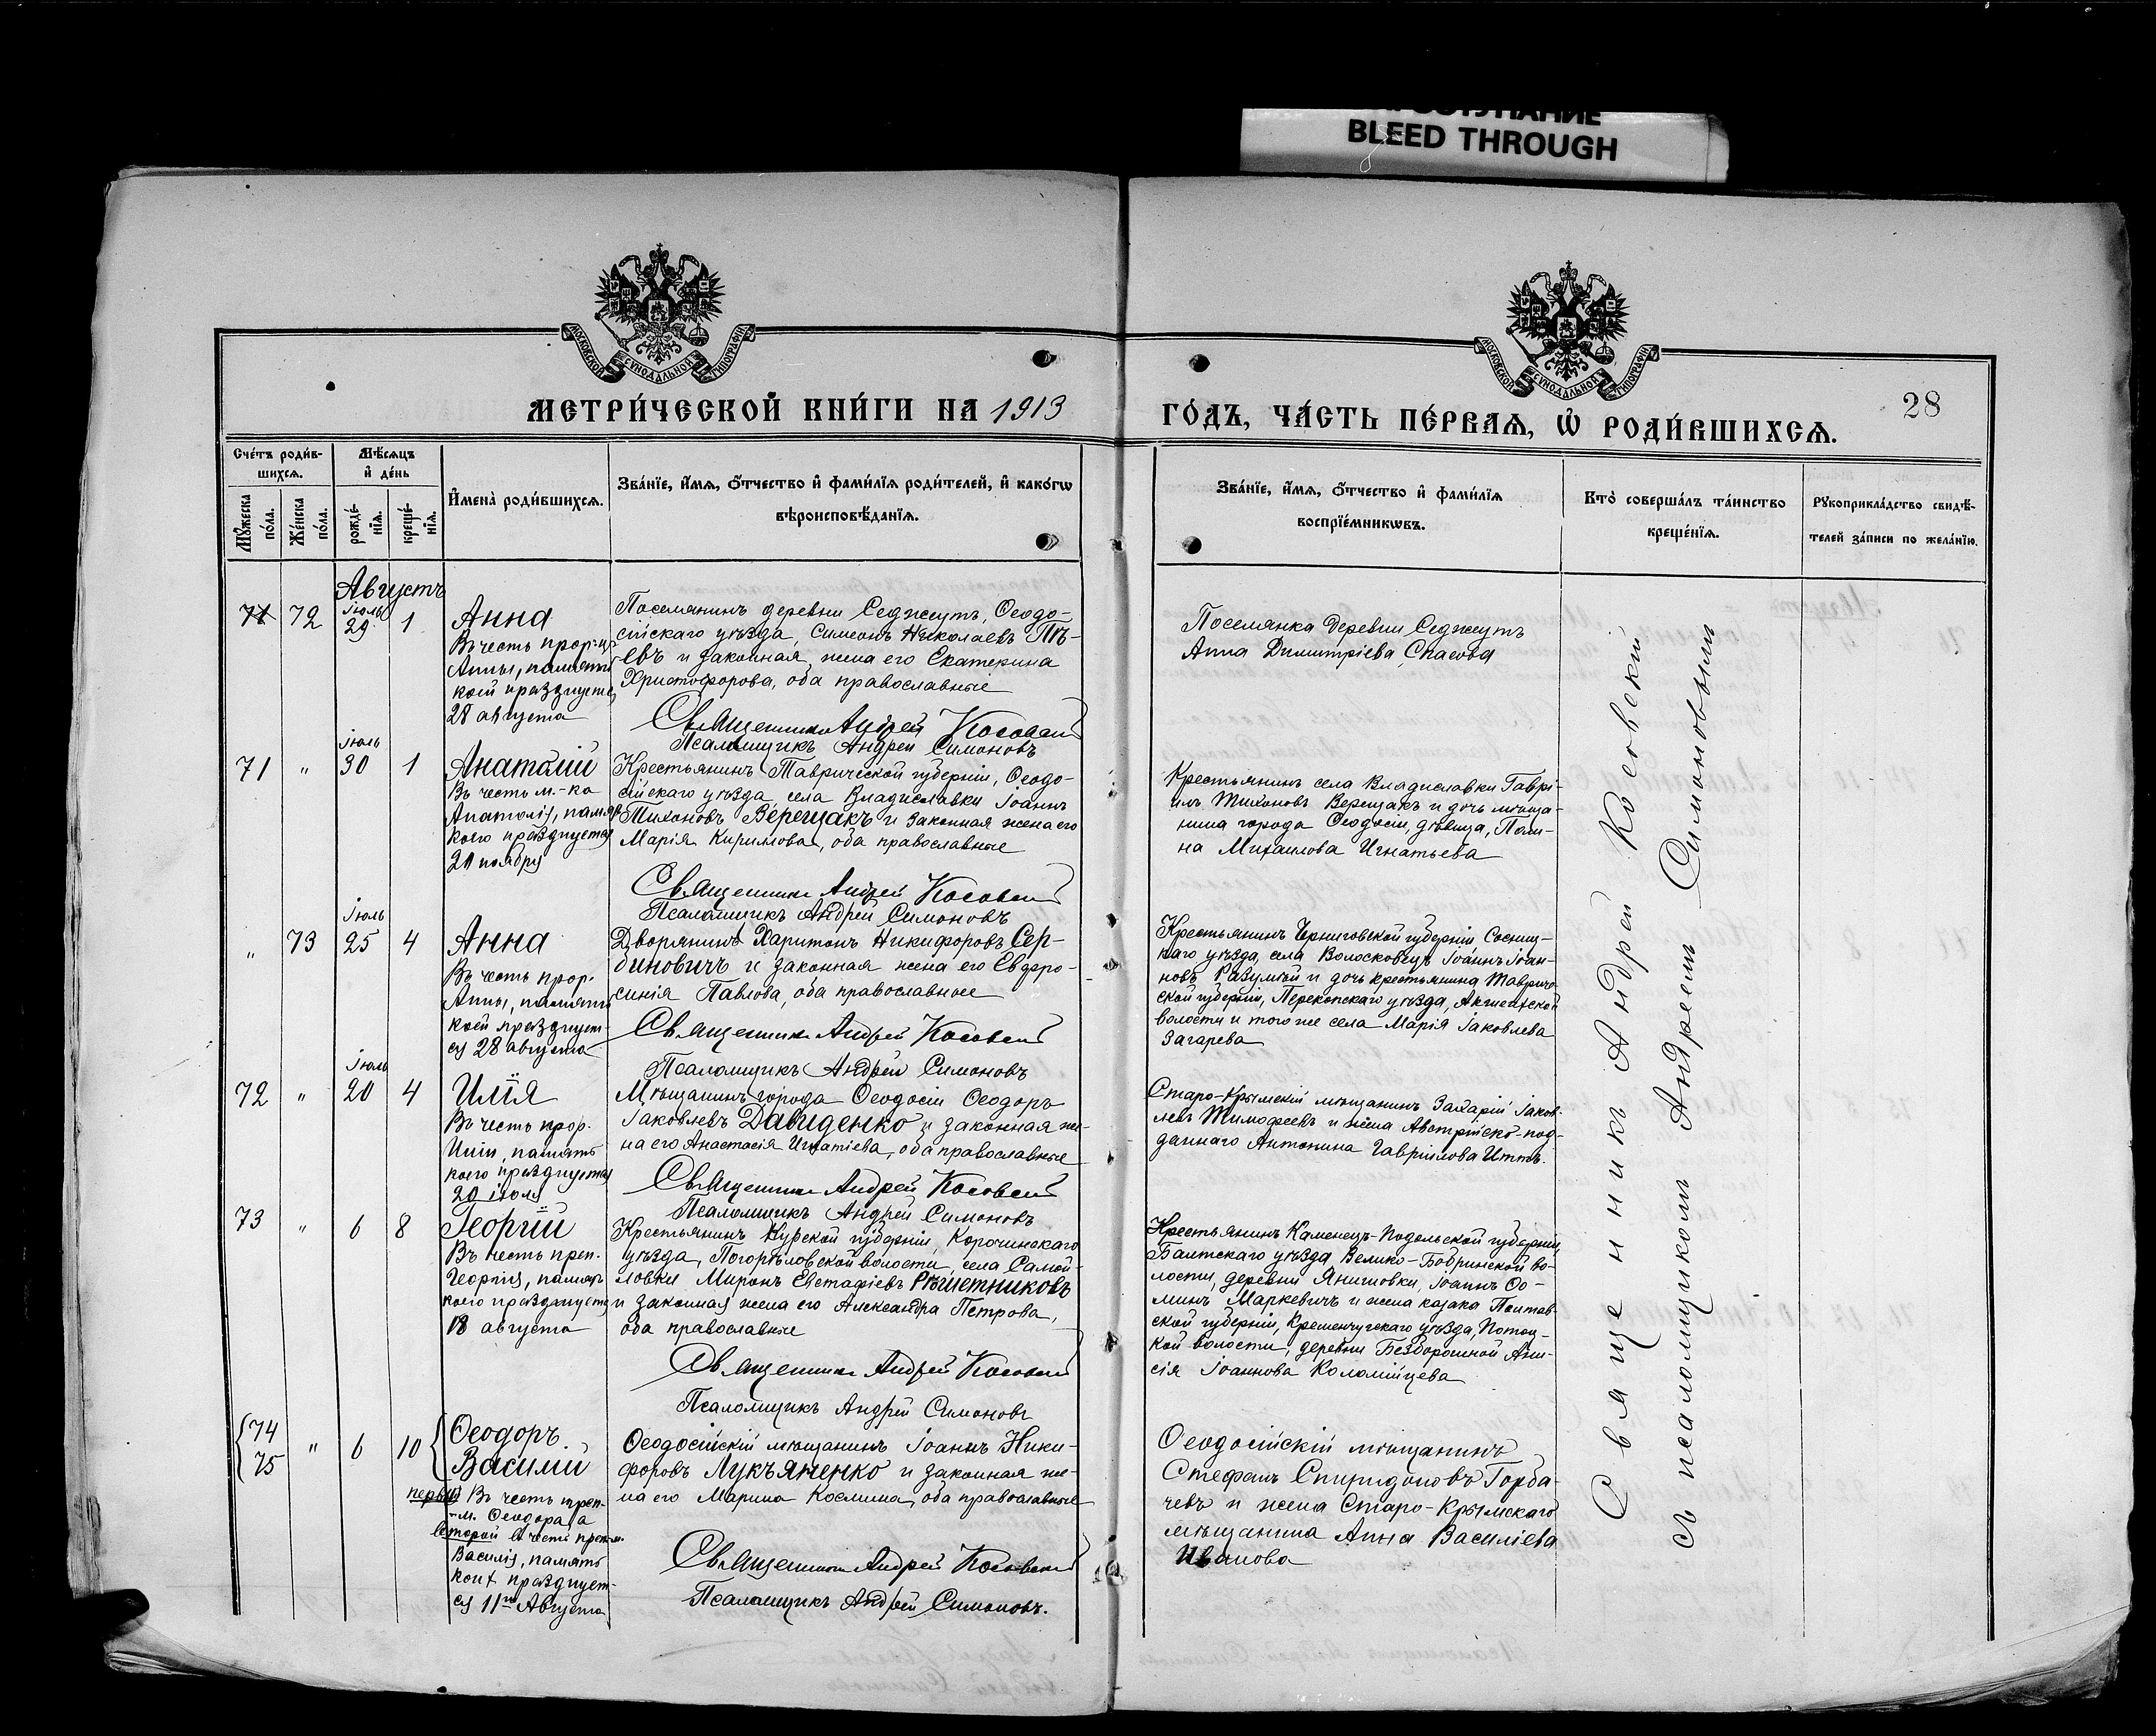 ПРОСТУПАНИЕ
BLEED THROUGH
МОСКОВСКОЙ СѴНОДАЛЬНОЙ ТИПОГРАФІИ
МОСКОВСКОЙ СѴНОДАЛЬНОЙ ТИПОГРАФІИ
МЕТРИ́ЧЕСКОЙ КНИ́ГИ НА 1913
ГО́ДЪ, ЧА́СТЬ ПЕ́РВАѦ, Ѡ҆ РОДИ́ВШИХСѦ.
28
Сче́тъ роди́в-
шихсѧ.
Мѣ́сѧцъ
и҆ де́нь
Мꙋ́жеска
по́ла.
Же́нска
по́ла.
рожде́-
нїѧ.
креще́-
нїѧ.
И҆мена̀ роди́вшихсѧ.
Зва́нїе, и҆́мѧ, ѻ҆́тчество и҆ фами́лїѧ роди́телей, и҆ како́гѡ
вѣроисповѣ́данїѧ.
Зва́нїе, и҆́мѧ, ѻ҆́тчество и҆ фами́лїѧ
воспрїе́мникѡвъ.
Кто̀ соверша́лъ та́инство
креще́нїѧ.
Рꙋкоприкла́дство свидѣ́-
телей за́писи по жела́нїю.
Августъ
71 72 Іюль 29 1 Анна
Въ честь прор-цы
Анны, память
коей празднуется
28 августа
Поселянинъ деревни Седжеутъ, Ѳеодо-
сійскаго уѣзда, Симеонъ Николаевъ
и законная жена его Екатерина
Христофорова, оба православные
Священникъ Андрей Косовскій
Псаломщикъ Андрей Симоновъ
Поселянка деревни Седжеутъ
Анна Димитріева Спасова
71 " Іюль 30 1 Анатолій
Въ честь м.-ка
Анатолія, память
коего празднуется
20 ноября
Крестьянинъ Таврической губерніи, Ѳеодо-
сійскаго уѣзда села Владиславки Іоаннъ
Тихоновъ Верещакъ и законная жена его
Марія Кирилова, оба православные
Священникъ Андрей Косовскій
Псаломщикъ Андрей Симоновъ
Крестьянинъ села Владиславки Гаврі-
илъ Тихоновъ Верещакъ и дочь мѣща-
нина города Ѳеодосіи, дѣвица, Поли-
на Михаилова Игнатьева
" 73 Іюль 25 4 Анна
Въ честь прор.
Анны, память
коей празднует-
ся 28 августа
Дворянинъ Харитонъ Никифоровъ Сер-
биновичъ и законная жена его Евфро-
синія Павлова, оба православные
Священникъ Андрей Косовскій
Псаломщикъ Андрей Симоновъ
Крестьянинъ Черниговской губерніи Сосниц-
каго уѣзда, села Волосковецъ Іоаннъ Іоан-
новъ Разумный и дочь крестьянина Тавриче-
ской губерніи, Перекопскаго уѣзда,
волости и того же села Марія Іаковлева
Загарева
72 " Іюль 20 4 Илія
Въ честь прор.
Иліи, память
коего празднуется
20 іюля
Мѣщанинъ города Ѳеодосіи Ѳеодоръ
Іаковлевъ Давиденко и законная же-
на его Анастасія Игнатіева, оба православные
Священникъ Андрей Косовскій
Псаломщикъ Андрей Симоновъ
Старо-Крымскій мѣщанинъ Захарій Іаков-
левъ Тимофеевъ и жена Австрійско-под-
даннаго Антонина Гавріилова
73 " 6 8 Георгій
Въ честь преп.
Георгія, память
коего празднуется
18 августа
Крестьянинъ Курской губерніи, Корочинскаго
уѣзда, Погорѣловской волости, села Самой-
ловки Миронъ Евстафіевъ Рѣшетниковъ
и законная жена его Александра Петрова,
оба православные
Священникъ Андрей Косовскій
Псаломщикъ Андрей Симоновъ
Крестьянинъ Каменецъ-Подольской губерніи
Балтскаго уѣзда Велико-Бобринской во-
лости, деревни Янишовки, Іоаннъ Ѳо-
минъ Маркевичъ и жена казака Полтав-
ской губерніи, Кременчугскаго уѣзда, Поток-
кой волости, деревни Безборошной Ани-
сія Іоаннова Коломійцева
74
75 " 6 10 Ѳеодоръ
Василій
первый Въ честь преп.-
м. Ѳеодора, а
второй въ честь преп. м.
Василія, память
коих празднует-
ся 11го Августа
Ѳеодосійскій мѣщанинъ Іоаннъ Ники-
форовъ Лукъяненко и законная же-
на его Марина Космина, оба православные
Священникъ Андрей Косовскій
Псаломщикъ Андрей Симоновъ.
Ѳеодосійскій мѣщанинъ
Стефанъ Спиридоновъ Горба-
чевъ и жена Старо-Крымскаго
мѣщанина Анна Василіева
Иванова
Священникъ Андрей Косовскій
съ псаломщикомъ Андреемъ Симоновымъ